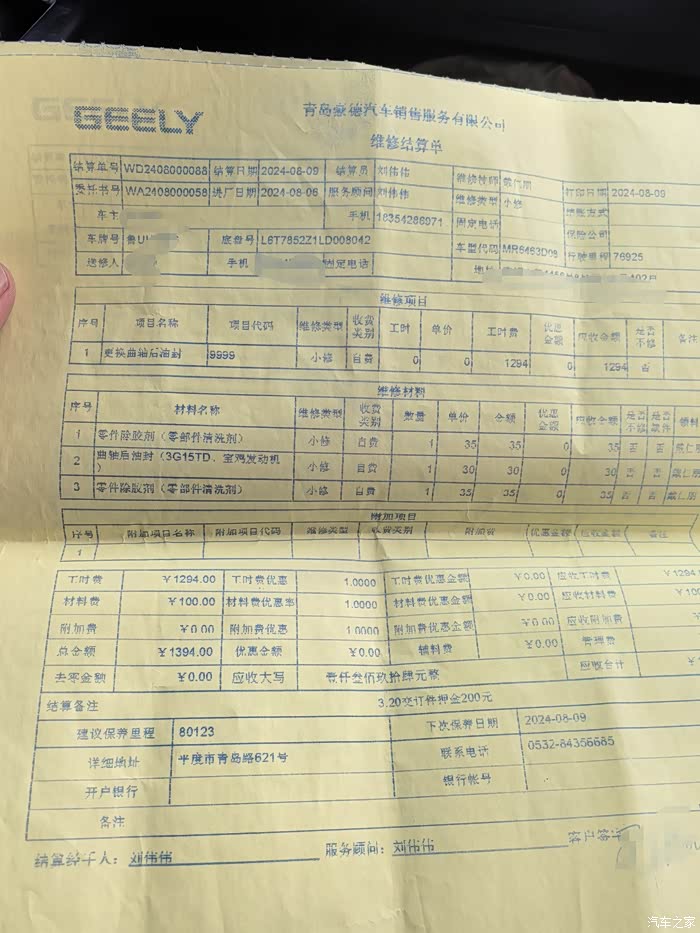 GEELY
青岛豪德汽车销售服务有限公司
维修结算单
结算单号 WD2408000088 结算日期 2024-08-09 结算员 刘伟伟 维修技师 打印日期 2024-08-09
委托书号 WA2408000058 进厂日期 2024-08-06 服务顾问 刘伟伟 维修类型 小修 结账方式
车主 手机 18354286971 固定电话 保险公司
车牌号 鲁U 底盘号 L6T7852Z1LD008042 车型代码 MR6463D08 行驶里程 76925
送修人 手机 固定电话 地址
维修项目
序号 项目名称 项目代码 维修类型 收费类别 工时 单价 工时费 优惠金额 应收金额 是否不修 备注
1 更换曲轴后油封 9999 小修 自费 0 0 1294 0 1294 否
维修材料
序号 材料名称 维修类型 收费类别 数量 单价 金额 优惠金额 应收金额 是否不修 是否 领料
1 零件除胶剂（零部件清洗剂） 小修 自费 1 35 35 0 35 否 否 戴仁朋
2 曲轴后油封（3G15TD、宝鸡发动机） 小修 自费 1 30 30 0 30 否 否 戴仁朋
3 零件除胶剂（零部件清洗剂） 小修 自费 1 35 35 0 35 否 否 戴仁朋
附加项目
序号 附加项目名称 附加项目代码 维修类型 收费类别 附加费 优惠金额 应收金额 备注
1
工时费 ￥1294.00 工时费优惠 1.0000 工时费优惠金额 ￥0.00 应收工时费 ￥1294
材料费 ￥100.00 材料费优惠率 1.0000 材料费优惠金额 ￥0.00 应收材料费 ￥100
附加费 ￥0.00 附加费优惠 1.0000 附加费优惠金额 ￥0.00 应收附加费
总金额 ￥1394.00 优惠金额 ￥0.00 辅料费 ￥0.00 管理费
去零金额 ￥0.00 应收大写 壹仟叁佰玖拾肆元整 应收合计
结算备注 3.20交订件押金200元
建议保养里程 80123 下次保养日期 2024-08-09
详细地址 平度市青岛路621号 联系电话 0532-84356685
开户银行 银行帐号
备注
结算经手人： 刘伟伟 服务顾问： 刘伟伟
汽车之家